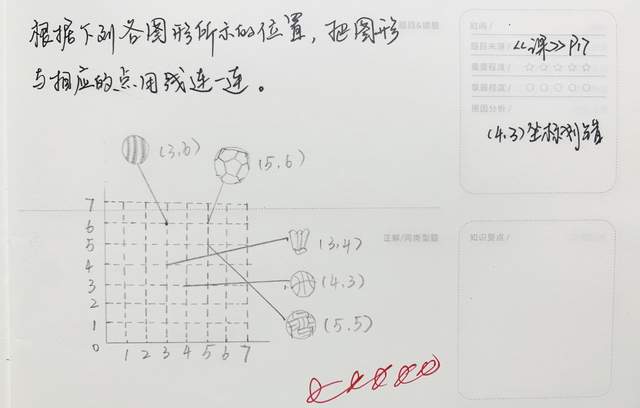 根据下列各图形所示的位置，把图形
与相应的点用线连一连。
(3,6)
(5,6)
(3,4)
(4,3)
(5,5)
7
6
5
4
3
2
1
0
1 2 3 4 5 6 7
正解/同类型题
题目来源/ 《课》P17
重要程度/ ☆☆☆☆☆
掌握程度/ ○○○○○
原因分析/
(4,3)坐标列错
知识要点/